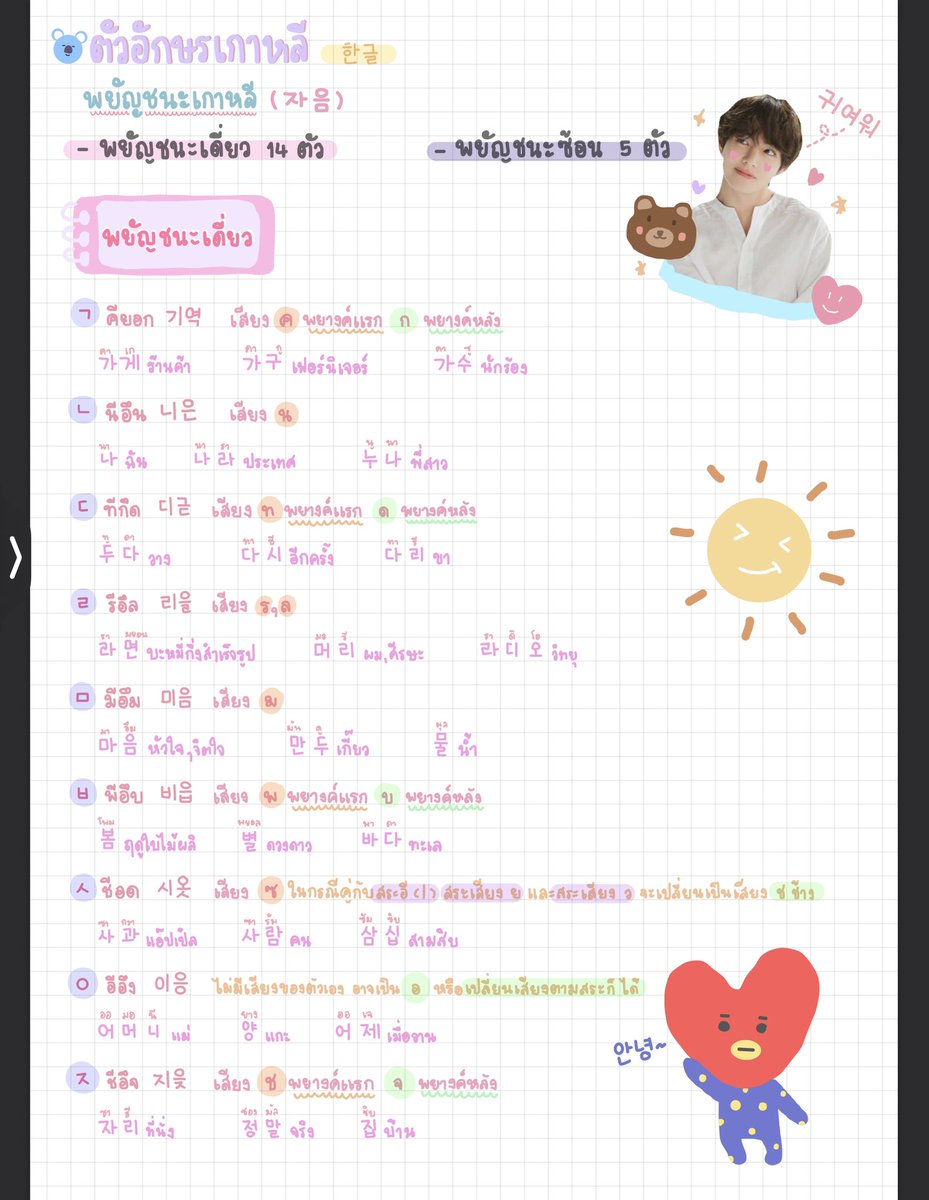 ตัวอักษรเกาหลี 한글
พยัญชนะเกาหลี (자음)
- พยัญชนะเดี่ยว 14 ตัว - พยัญชนะซ้อน 5 ตัว
귀여워
พยัญชนะเดี่ยว
ㄱ คียอก 기역 เสียง ค พยางค์แรก ก พยางค์หลัง
คา เก คา กู คา ซู
가게 ร้านค้า 가구 เฟอร์นิเจอร์ 가수 นักร้อง
ㄴ นีอึน 니은 เสียง น
นา นา รา นู นา
나 ฉัน 나라 ประเทศ 누나 พี่สาว
ㄷ ทีกึด 디귿 เสียง ท พยางค์แรก ด พยางค์หลัง
두다 วาง 다시 อีกครั้ง 다리 ขา
ㄹ รีอึล 리을 เสียง ร,ล
รา มยอน มอ รี รา ดิ โอ
라면 บะหมี่กึ่งสำเร็จรูป 머리 ผม,ศีรษะ 라디오 วิทยุ
ㅁ มีอึม 미음 เสียง ม
มา อึม มัน ดู มุล
마음 หัวใจ,จิตใจ 만두 เกี๊ยว 물 น้ำ
ㅂ พีอึบ 비읍 เสียง พ พยางค์แรก บ พยางค์หลัง
โพม พยอล พา ดา
봄 ฤดูใบไม้ผลิ 별 ดวงดาว 바다 ทะเล
ㅅ ชีอด 시옷 เสียง ซ ในกรณีคู่กับสระอี (ㅣ) สระเสียง ย และสระเสียง ว จะเปลี่ยนเป็นเสียง ช ช้าง
ซา กวา ซา รัม ซัม ชิบ
사과 แอ๊ปเปิล 사람 คน 삼십 สามสิบ
ㅇ อีอึง 이응 ไม่มีเสียงของตัวเอง อาจเป็น อ หรือเปลี่ยนเสียงตามสระก็ได้
ออ มอ นี ยาง ออ เจ
어머니 แม่ 양 แกะ 어제 เมื่อวาน
안녕~
ㅈ ชีอึจ 지읒 เสียง ช พยางค์แรก จ พยางค์หลัง
ชา รี ชอง มัล ชิบ
자리 ที่นั่ง 정말 จริง 집 บ้าน